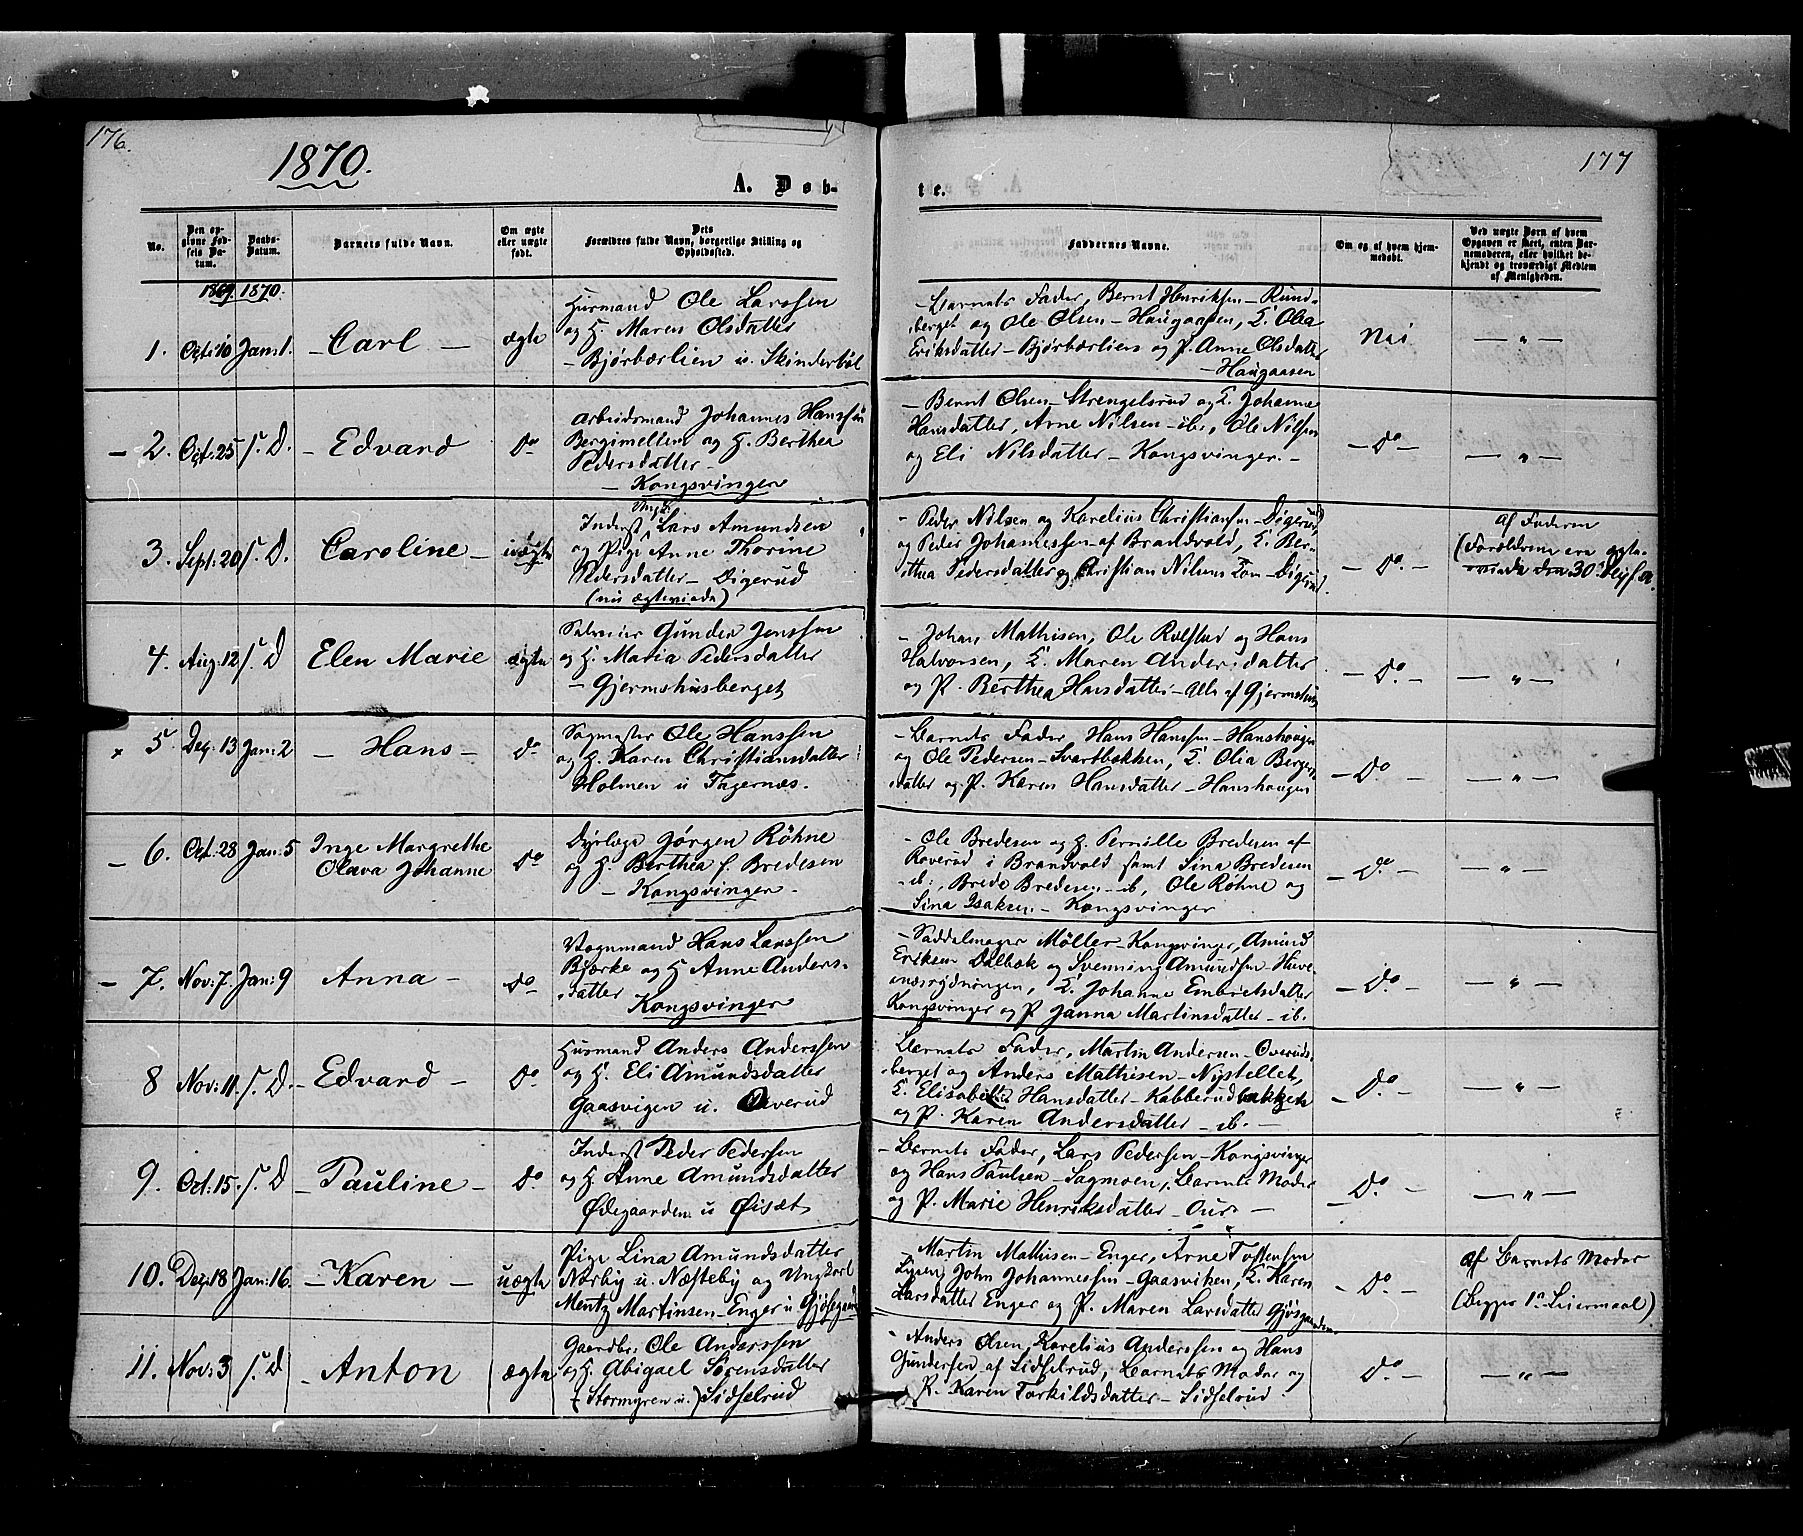 176.
177
1870.
A. Døb-
te.
No.
Den op-
givne Fød-
sels Da-
tum.
Daabs-
Datum.
Barnets fulde Navn.
Om ægte
eller uægte
født.
Dets
Forældres fulde Navn, borgerlige Stilling og
Opholdssted.
Faddernes Navne.
Om og af hvem hjem-
medøbt.
Ved uægte Børn af hvem
Opgaven er skeet, enten Bar-
nemoderen, eller hvilket be-
kjendt og troværdigt Medlem
af Menigheden.
1869. 1870.
1. Oct: 10 Jan: 1. - Carl - ægte
Huusmand Ole Larssen
og H. Maren Olsdatter
- Bjørbærlien u. Skinderbøl
- Barnets Fader, Bernt Henriksen - Rund-
berget og Ole Olsen - Haugaasen, K. Olea
Eriksdatter - Bjørbærlien og P. Anne Olsdatter
- Haugaasen
Nei
- " -
- 2. Oct: 25 S. D. - Edvard do
Arbeidsmand Johannes Hanssen
Bergimellem og H. Berthea
Pedersdatter -
- Kongsvinger
- Bernt Olsen - Strengelsrud og K. Johanne
Hansdatter, Arne Nilsen - ib., Ole Nilsen
og Eli Nilsdatter - Kongsvinger. -
- do -
- " -
3. Sept: 20 S. D. Caroline - uægte
Inderst Ungk. Lars Amundsen
og Pige Anne Thorine
Pedersdatter - Digerud
(nu ægteviede)
- Peder Nilsen og Karelius Christiansen - Digerud,
og Peder Johannessen - af Brandvold, K. Ber-
thea Pedersdatter og Christian Nilsens Kone - Digerud.
- do. -
af Faderen
(Forældrene ere ægte-
viede den 30
4. Aug: 12 S. D Elen Marie ægte
Salmager Gunder Jenssen
og H. Maria Pedersdatter
- Gjermshusberget
- Johan Mathisen, Ole Rolstad og Hans
Halvorsen, K. Maren Andersdatter
og P. Berthea Hansdatter - Alle af Gjermshus
- do. -
- " -
x 5 Dez: 13 Jan: 2 - Hans - do
Sagmester Ole Hanssen
og H. Karen Christiansdatter
Holmen u Tagernæs.
- Barnets Fader, Hans Hanssen - Hanshaugen
og Ole Pedersen - Svartbækken, K. Olia Bergers-
datter og P. Karen Hansdatter - Hanshaugen
- do -
- " -
- 6. Oct: 28 Jan: 5 Inge Margrethe
Olava Johanne do
Dyrlæge Jørgen Röhne
og H. Berthea f. Bredesen
- Kongsvinger -
- Ole Bredesen og H. Pernille Bredesen af
Roverud i Brandvold samt Sina Bredesen
- ib:, Brede Bredesen - ib, Ole Röhne og
Sina Isaksen - Kongsvinger
- do -
- " -
- 7. Nov: 7. Jan: 9 Anna - do
Vognmand Hans Larssen
Bjørke og H Anne Anders-
datter
Kongsvinger
- Saddelmager Möller - Kongsvinger, Amund
Eriksen Dalbæk og Svenning Amundsen Huve-
næsrydningen, K. Johanne Embretsdatter
Kongsvinger og P Janna Martinsdatter - ib.
- do. -
- " -
8 Nov: 11. S. D. - Edvard - do
Huusmand Anders Anderssen
og H. Eli Amundsdatter
Gaasvigen u. Overud
Barnets Fader, Martin Andersen - Overuds-
berget og Anders Mathisen - Nystellet,
K. Elisabeth Hansdatter - Kabberudbakken
og P. Karen Andersdatter - ib. -
- do. -
- " -
9. Oct: 15. S. D - Pauline - do
Inderst Peder Pedersen
og H Anne Amundsdatter
Ødegaarden u Øiset
- Barnets Fader, Lars Pedersen - Kongsvinger
og Hans Paulsen - Sagmoen, Barnets Moder
og P. Marie Henriksdatter - Our -
- do. -
- " -
10. Dez: 18 Jan: 16. - Karen - uægte
Pige Lina Amundsdatter
Nørby u. Næsteby og Ungkarl
Mentz Martinsen - Enger u Gjøsegaarden
- Martin Mathisen - Enger, Arne Tostensen
John Johannessen - Gaasviken, K. Karen
Larsdatter Enger og P. Maren Larsdatter Gjøsgaarden.
- do. -
af Barnets Moder
(Begges 1ste Leiermaal)
11. Nov: 3 S. D - Anton ægte
Gaardbr. Ole Anderssen
og H. Abigael Sørensdatter
(Stormyren u.) Lidselrud
- Anders Olsen, Karelius Anderssen og Hans
Gundersen af Lidselrud, Barnets Moder og
P. Karen Torkildsdatter - Lidselrud
do. -
- " -